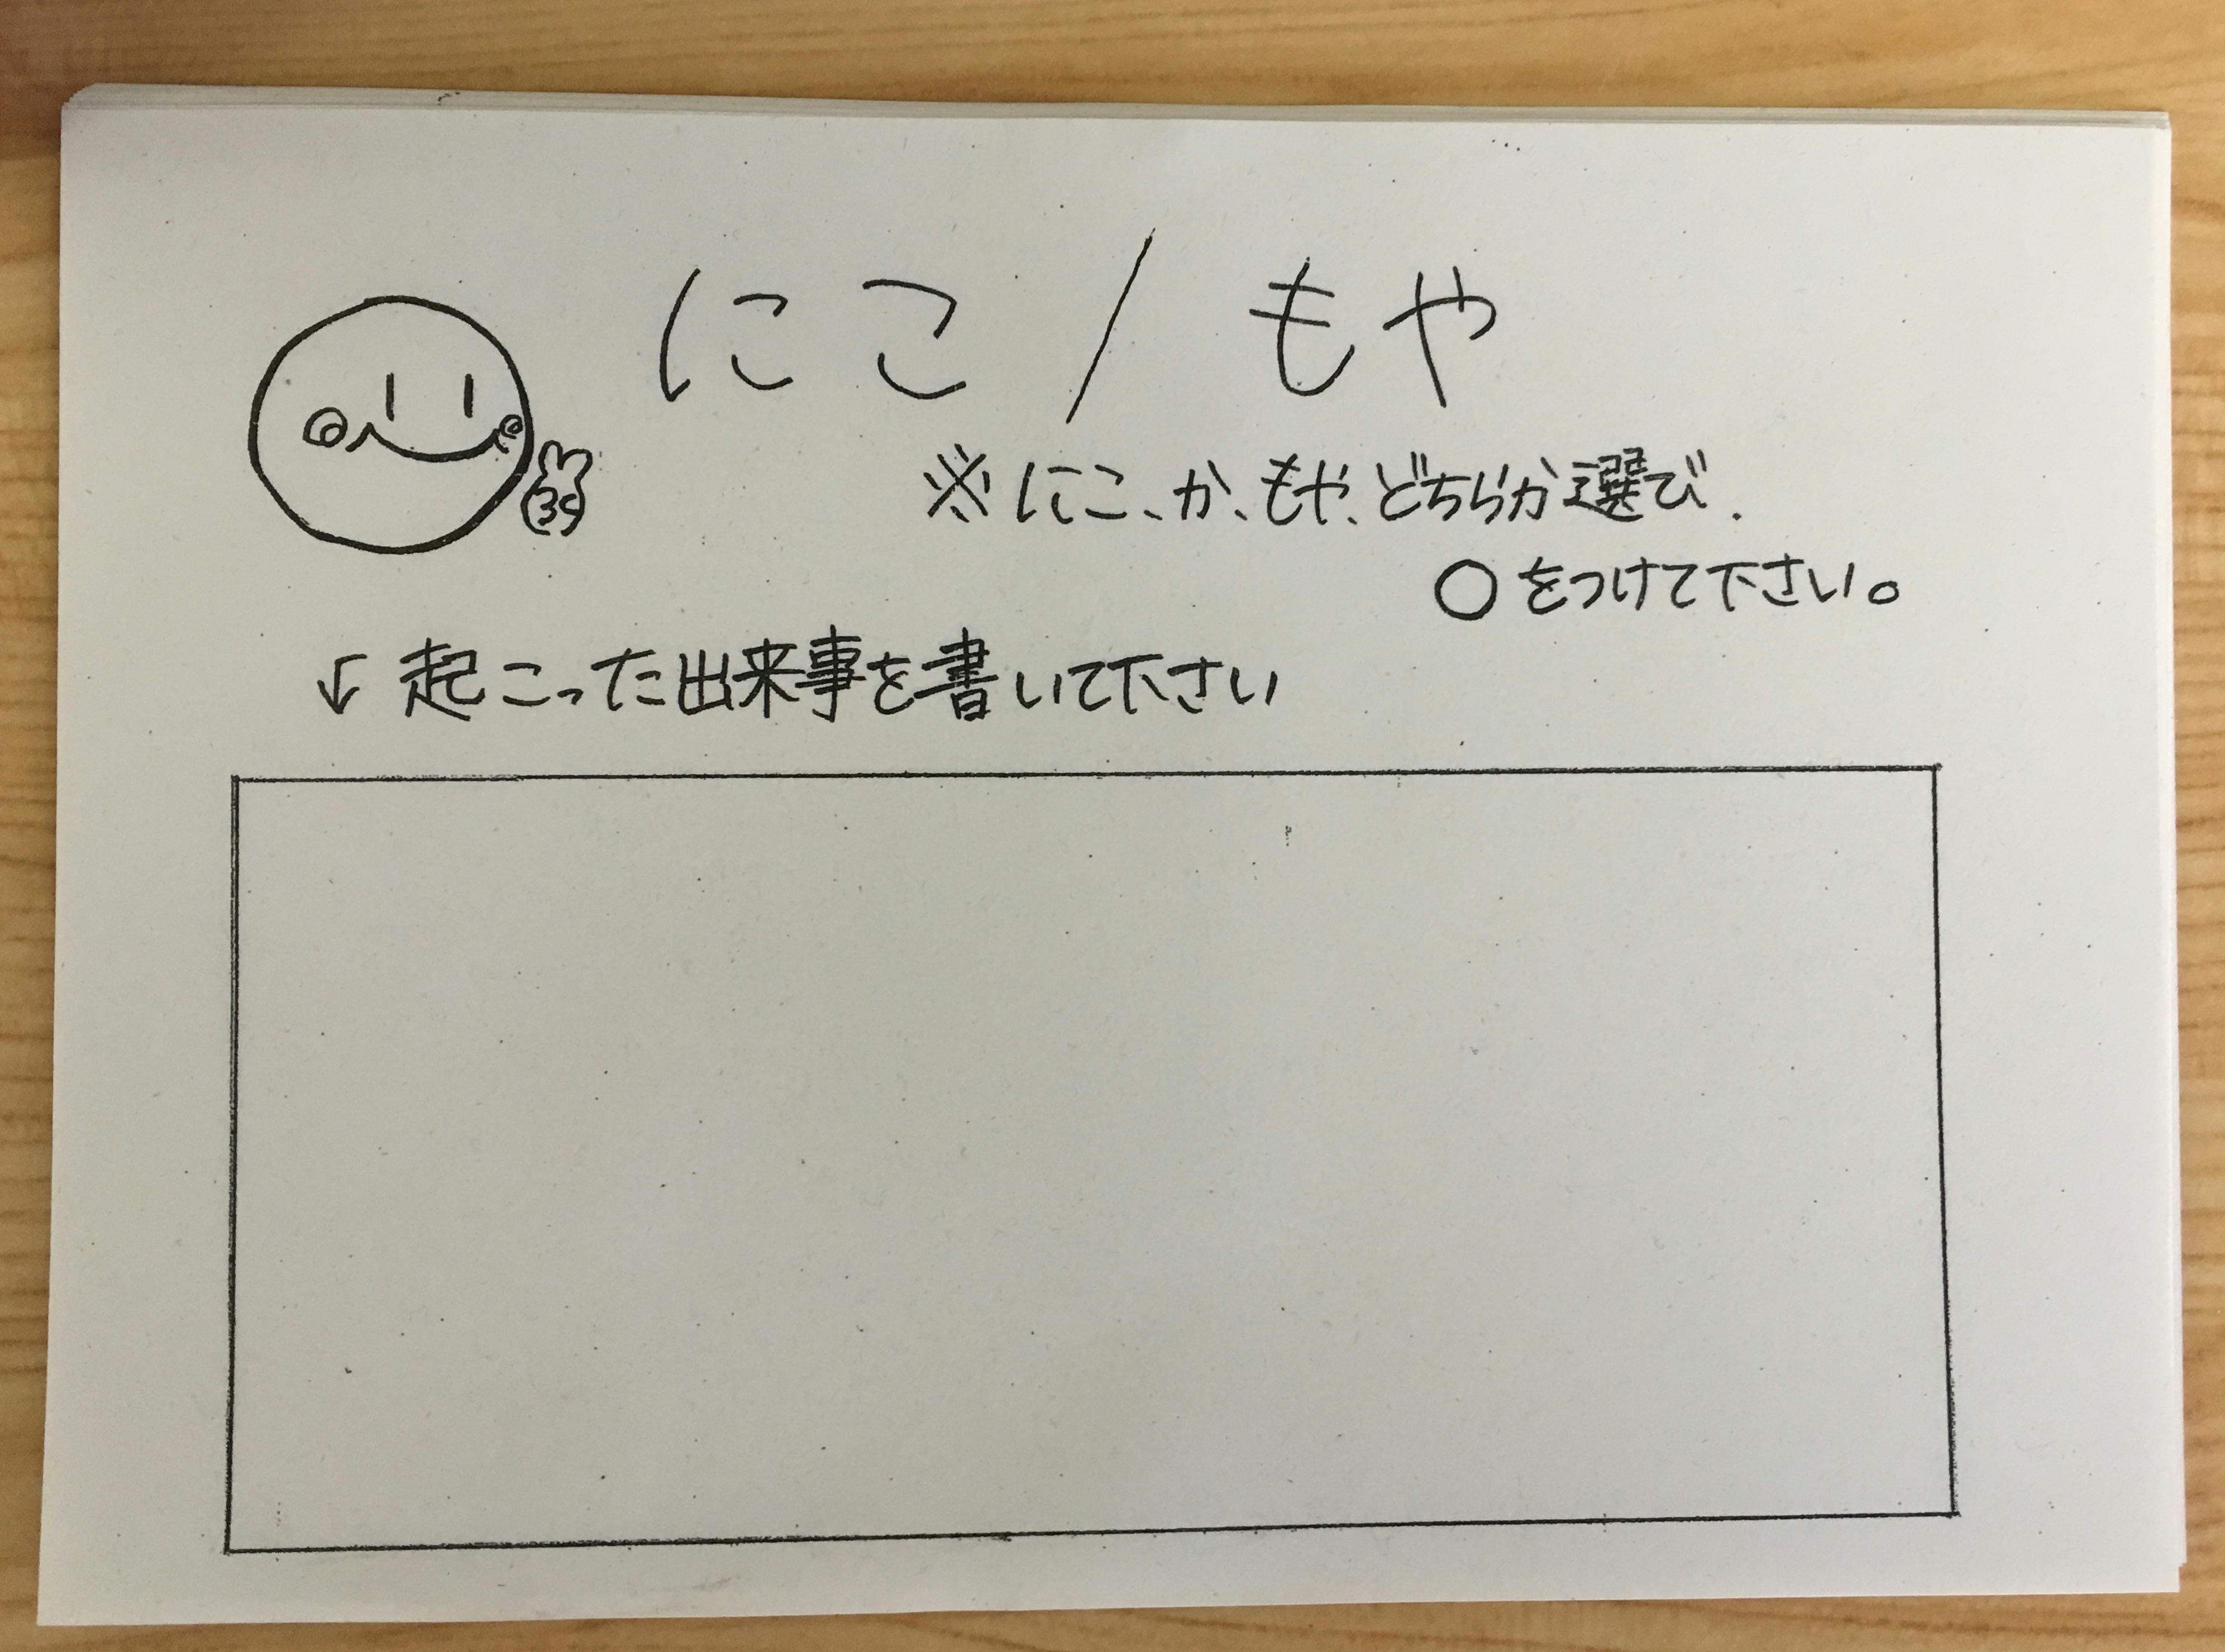 にこ / もや
※にこ、か、もや、どちらか選び、
○をつけて下さい。
↓起こった出来事を書いて下さい